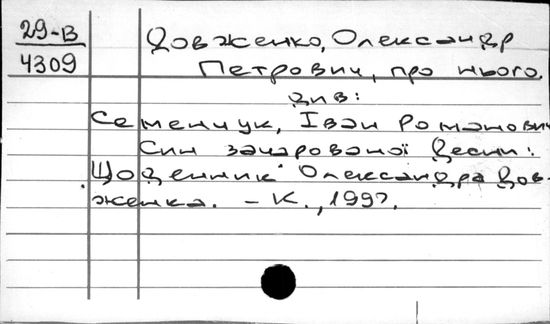 29-В
4309
Довженко, Олександр
Петрович, про нього
див:
Семенчук, Іван Романович
Син зачарованої Десни:
Щоденник Олександра Дов-
женка. – К., 1997.